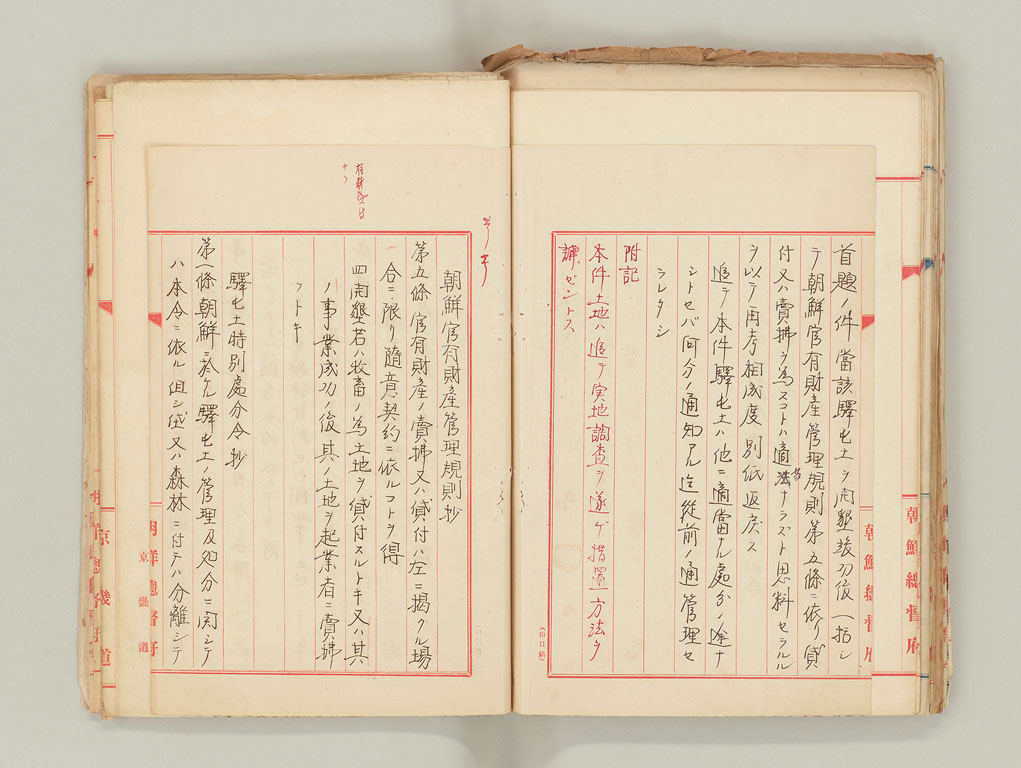 首題ノ件當該驛屯土ヲ開墾竣功後一括シ
テ朝鮮官有財産管理規則第五條ニ依リ貸
付又ハ賣拂ヲ為スコトハ適法ナラズト思料セラルル
ヲ以テ再考相成度別紙返戻ス
追テ本件驛屯土ハ他ニ適當ナル處分ノ途ナ
シトセバ何分ノ通知アル迄從前ノ通管理セ
ラレタシ
附記
本件土地ハ追テ実地調査ヲ遂ゲ措置方法ヲ
講ゼントス
朝鮮總督府
朝鮮總督府
(山口納)
朝鮮官有財産管理規則抄
第五條 官有財産ノ賣拂又ハ貸付ハ左ニ揭クル場
合ニ限リ隨意契約ニ依ルコトヲ得
四 開墾若ハ牧畜ノ為土地ヲ貸付スルトキ又ハ其
ノ事業成功ノ後其ノ土地ヲ起業者ニ賣拂
フトキ
驛屯土特別處分令抄
第一條 朝鮮ニ於ケル驛屯土ノ管理及処分ニ関シテ
ハ本令ニ依ル但シ垈又ハ森林ニ付テハ分離シテ
朝鮮總督府
京畿道
京畿道